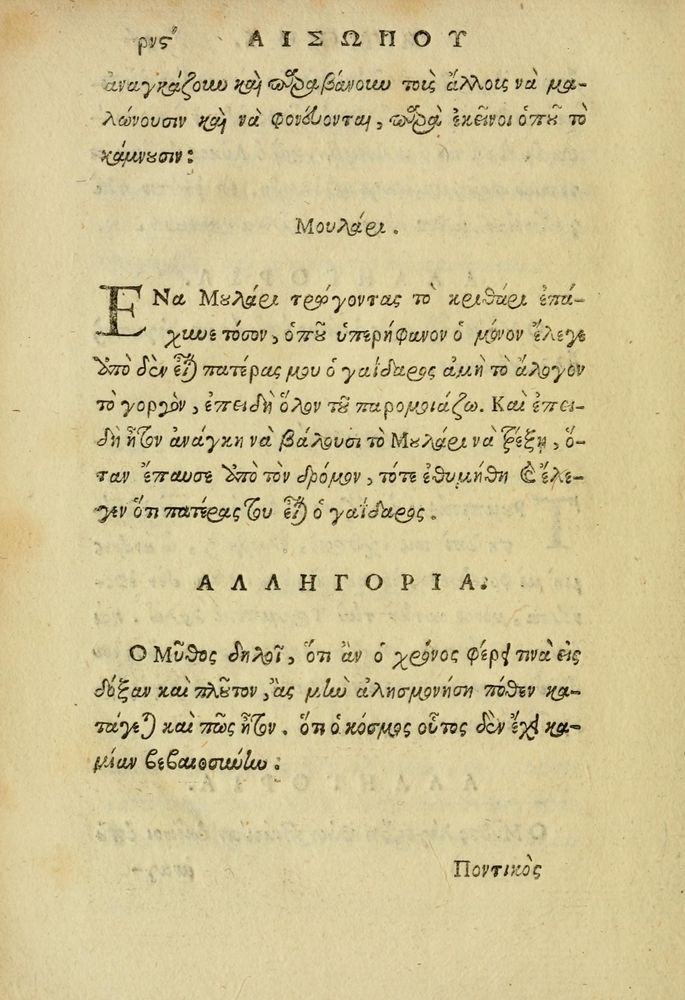 ρνςʹ ΑΙΣΩΠΟΥ
ἀναγκάζουν καὶ παραβάνουν τοὺς ἄλλοις νὰ μα-
λώνουσιν καὶ νὰ φονεύονται, παρὰ ἐκεῖνοι ὁποῦ τὸ
κάμνουσιν:
Μουλάρι.
ΕΝα Μουλάρι τρώγοντας τὸ κριθάρι ἐπά-
χυνε τόσον, ὁποῦ ὑπερήφανον ὁ μόνον ἔλεγε
πὸ δὲν εἶναι πατέρας μου ὁ γαΐδαρος ἀμὴ τὸ ἄλογον
τὸ γοργὸν, ἐπειδὴ ὅλον τοῦ παρομοιάζω. Καὶ ἐπει-
δὴ ἦτον ἀνάγκη νὰ βάλουσι τὸ Μουλάρι νὰ τρέξῃ, ὅ-
ταν ἔπαυσε ἀπὸ τὸν δρόμον, τότε ἐθυμήθη καὶ ἔλε-
γεν ὅτι πατέρας του εἶναι ὁ γαΐδαρος.
ΑΛΛΗΓΟΡΙΑ.
Ο Μῦθος δηλοῖ, ὅτι ἂν ὁ χρόνος φέρει τινὰ εἰς
δόξαν καὶ πλοῦτον, ἂς μὴν ἀλησμονήση πόθεν κα-
τάγεται καὶ πῶς ἦτον. ὅτι ὁ κόσμος οὗτος δὲν ἔχει κα-
μίαν βεβαιοσύνην:
Ποντικὸς